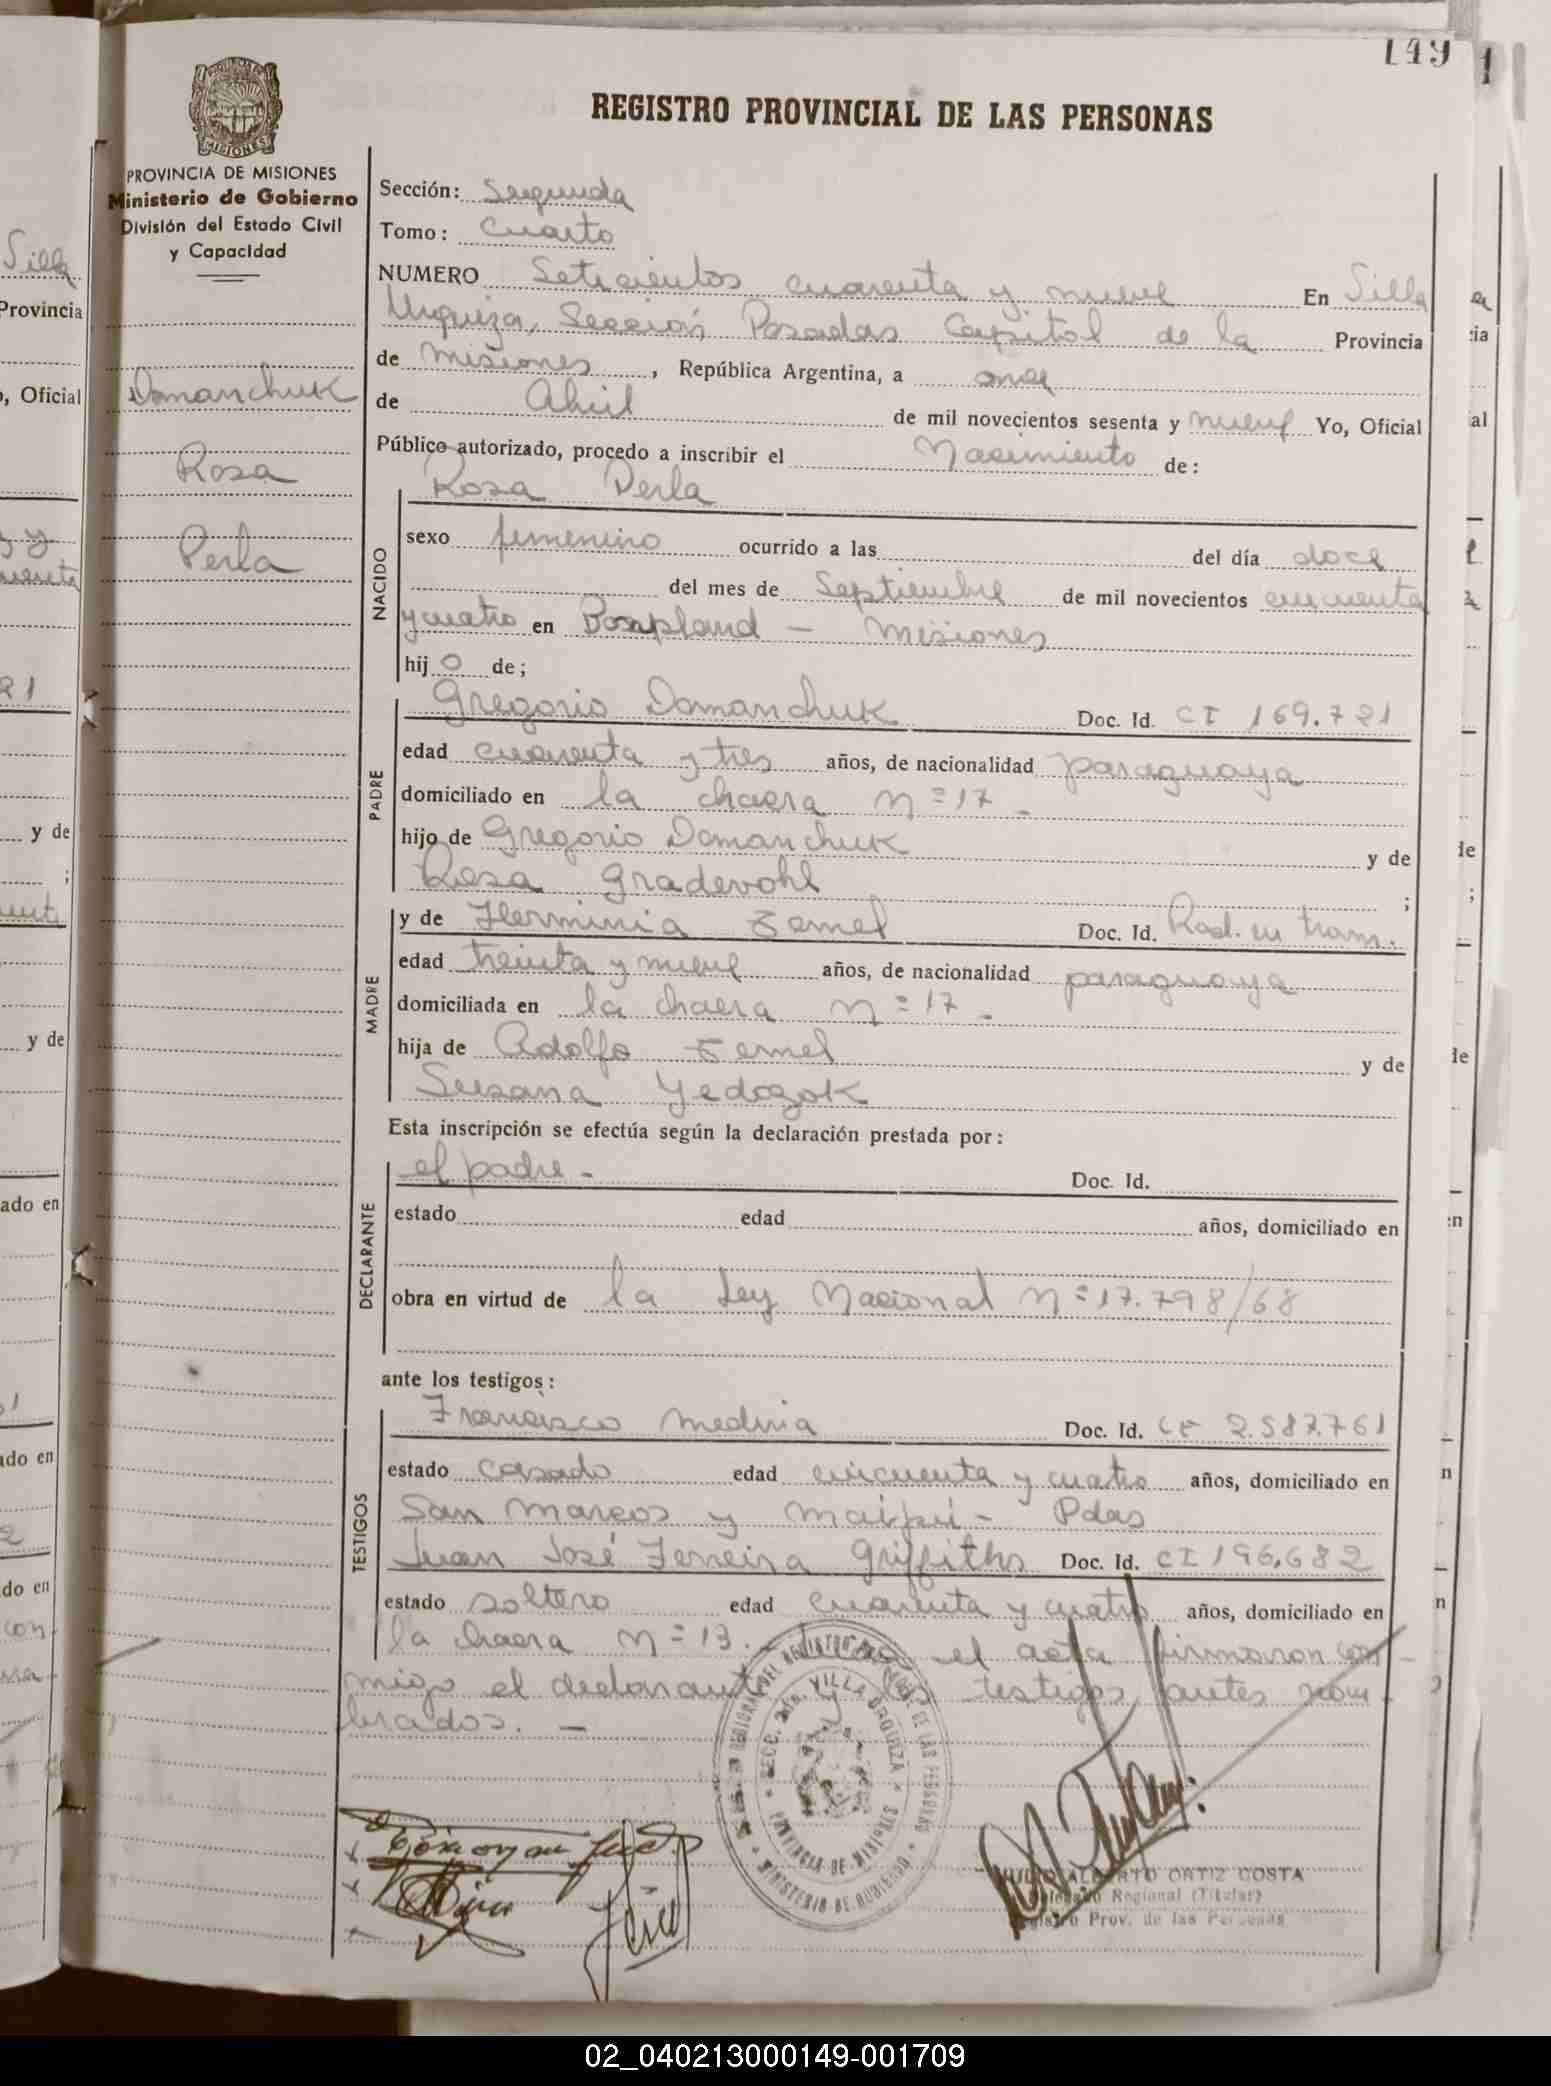 149
REGISTRO PROVINCIAL DE LAS PERSONAS
MISIONES
PROVINCIA DE MISIONES
Ministerio de Gobierno
División del Estado Civil
y Capacidad
Domanchuk
Rosa
Perla
Sección: Segunda
Tomo: Cuarto
NUMERO Setecientos cuarenta y nueve En Villa
Urquiza, Sección Posadas Capital de la Provincia
de Misiones, República Argentina, a once
de Abril de mil novecientos sesenta y nueve Yo, Oficial
Público autorizado, procedo a inscribir el Nacimiento de:
Rosa Perla
NACIDO
sexo femenino ocurrido a las del día doce
del mes de Septiembre de mil novecientos cincuenta
y cuatro en Bonpland - Misiones
hijo de;
PADRE
Gregorio Domanchuk Doc. Id. CI 169.721
edad cuarenta y tres años, de nacionalidad paraguaya
domiciliado en la chacra nº 17 -
hijo de Gregorio Domanchuk y de
Rosa Gradevohl ;
MADRE
y de Herminia Zemel Doc. Id. Rad. en tram.
edad treinta y nueve años, de nacionalidad paraguaya
domiciliada en la chacra nº 17 -
hija de Adolfo Zemel y de
Susana Yedozok
Esta inscripción se efectúa según la declaración prestada por:
DECLARANTE
el padre - Doc. Id.
estado edad años, domiciliado en
obra en virtud de la Ley Nacional Nº 17.798/68
ante los testigos:
TESTIGOS
Francisco Medina Doc. Id. CI 2.587.761
estado casado edad cincuenta y cuatro años, domiciliado en
San Marcos y Maipú - Pdas
Juan José Ferreira Griffiths Doc. Id. CI 196.682
estado soltero edad cuarenta y cuatro años, domiciliado en
la chacra nº 13. - el acta firmaron con-
migo el declarante y testigos antes nom-
brados. -
SECC. 2da. VILLA URQUIZA
PROVINCIA DE MISIONES
MINISTERIO DE GOBIERNO
ALBERTO ORTIZ COSTA
Delegado Regional (Titular)
Registro Prov. de las Personas
02_040213000149-001709